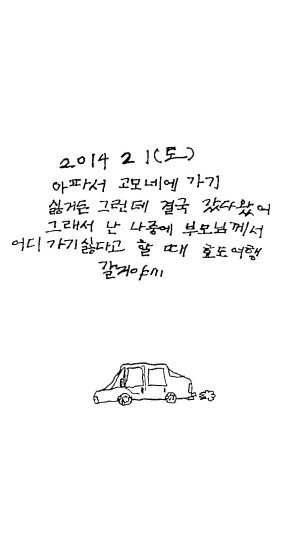 2014 2 1 (토)
아파서 고모네에 가기
싫거든 그런데 결국 갔다왔어
그래서 난 나중에 부모님께서
어디 가기 싫다고 할 때 효도여행
갈거야!!!